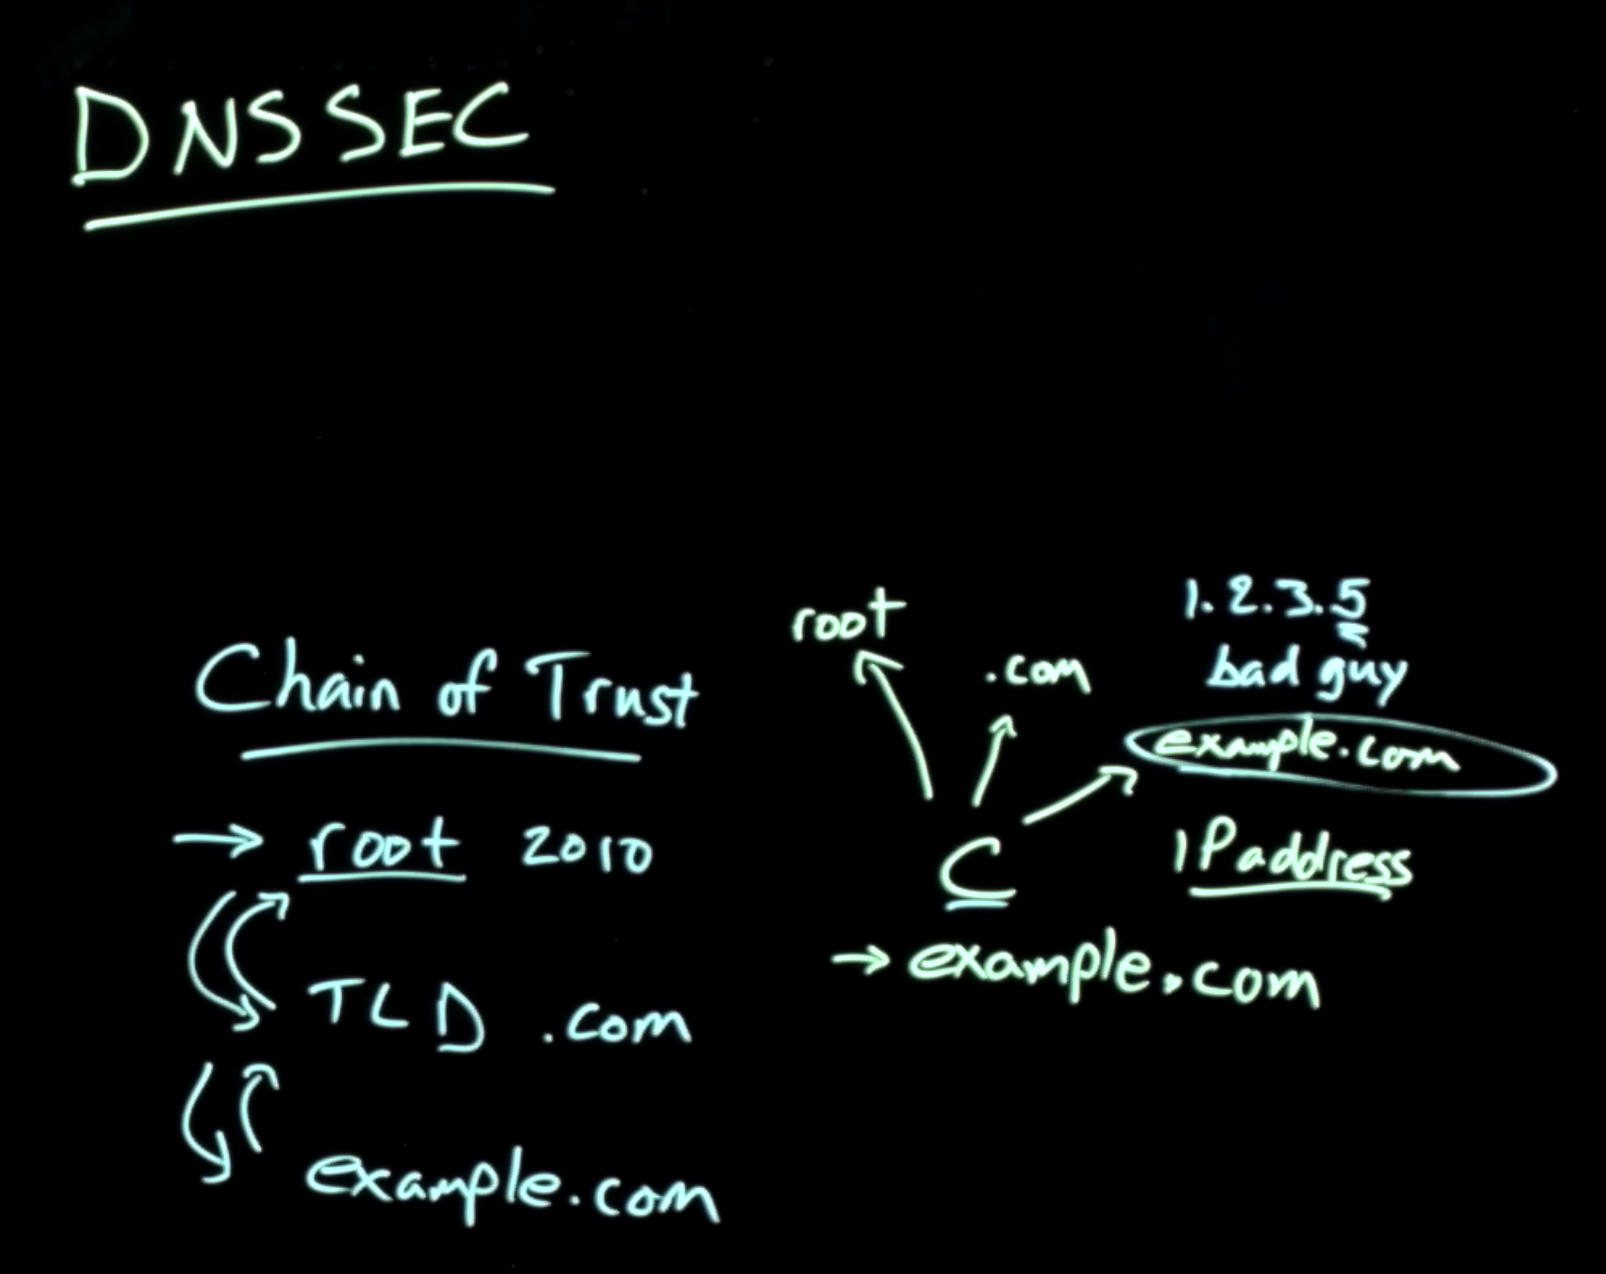 DNSSEC
Chain of Trust
→ root 2010
TLD .com
example.com
root
.com
1.2.3.5
bad guy
example.com
IP address
C
→ example.com